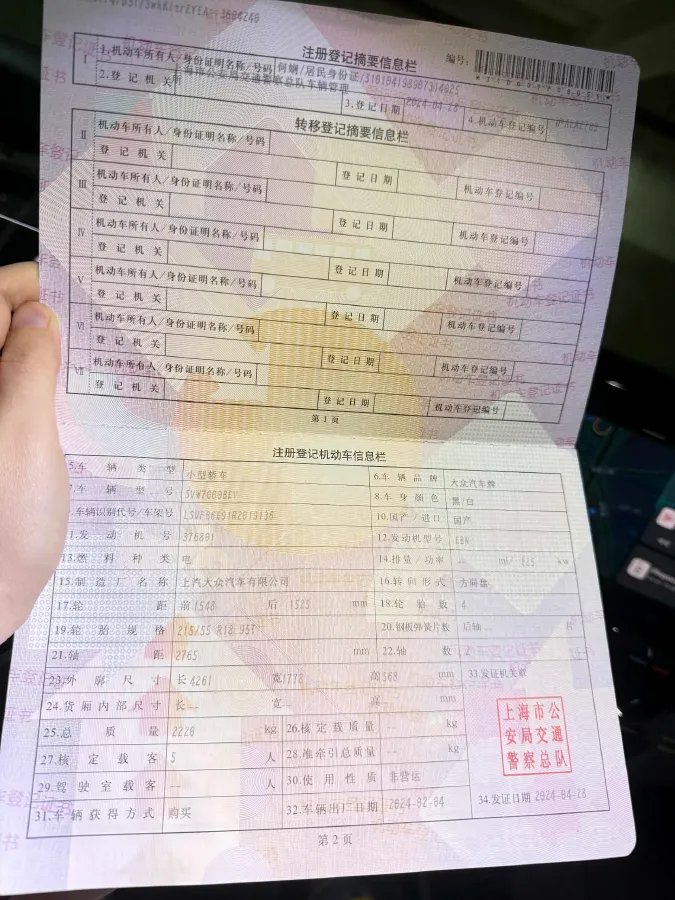 注册登记摘要信息栏
编号:
Ⅰ 1.机动车所有人/身份证明名称/号码
2.登记机关 上海市公安局交通警察总队车辆管理
3.登记日期 2024-04-28 4.机动车登记编号
转移登记摘要信息栏
Ⅱ 机动车所有人/身份证明名称/号码
登记机关 登记日期 机动车登记编号
Ⅲ 机动车所有人/身份证明名称/号码
登记机关 登记日期 机动车登记编号
Ⅳ 机动车所有人/身份证明名称/号码
登记机关 登记日期 机动车登记编号
Ⅴ 机动车所有人/身份证明名称/号码
登记机关 登记日期 机动车登记编号
Ⅵ 机动车所有人/身份证明名称/号码
登记机关 登记日期 机动车登记编号
Ⅶ 机动车所有人/身份证明名称/号码
登记机关 登记日期 机动车登记编号
第1页
注册登记机动车信息栏
5.车辆类型 小型轿车 6.车辆品牌 大众汽车牌
车辆型号 8.车身颜色 黑/白
车辆识别代号/车架号 10.国产/进口 国产
发动机号 376801 12.发动机型号 EBN
13.燃料种类 电 14.排量/功率 -- ml/ 125 kw
15.制造厂名称 上汽大众汽车有限公司 16.转向形式 方向盘
17.轮距 前1548 后1525 mm 18.轮胎数 4
19.轮胎规格 215/55 R18 95T 20.钢板弹簧片数 后轴 -- 片
21.轴距 2765 mm 22.轴数 2
23.外廓尺寸 长4261 宽1778 高1568 mm 33.发证机关章
24.货厢内部尺寸 长-- 宽-- 高-- mm
25.总质量 2220 kg 26.核定载质量 -- kg
27.核定载客 5 人 28.准牵引总质量 -- kg
29.驾驶室载客 -- 人 30.使用性质 非营运
31.车辆获得方式 购买 32.车辆出厂日期 2024-02-04 34.发证日期 2024-04-28
上海市公
安局交通
警察总队
第2页